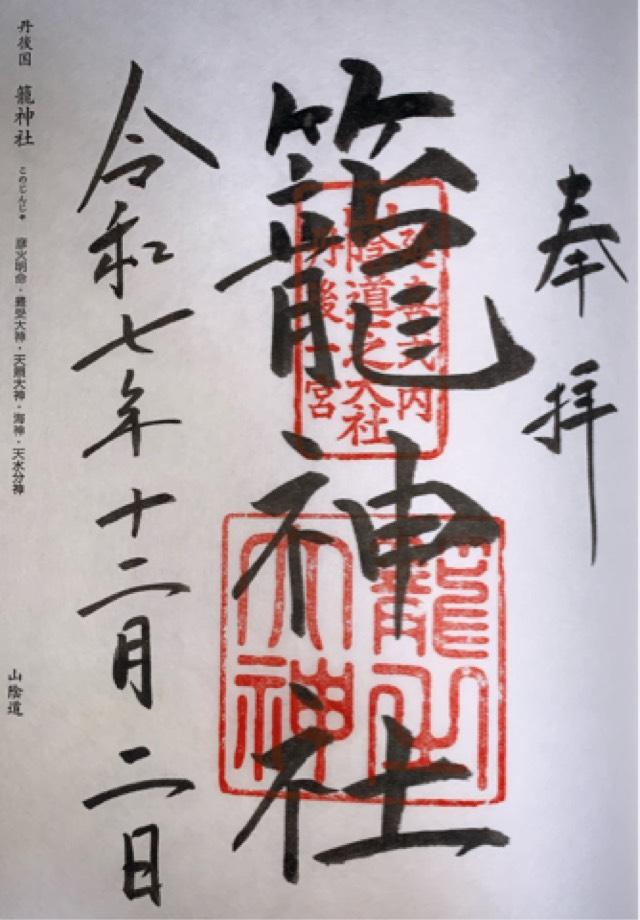 奉拝
籠神社
延喜式内
山陰道一之大社
丹後一宮
籠之
大神
令和七年十二月二日
丹後国 籠神社 このじんじゃ 彦火明命・豊受大神・天照大神・海神・天水分神 山陰道